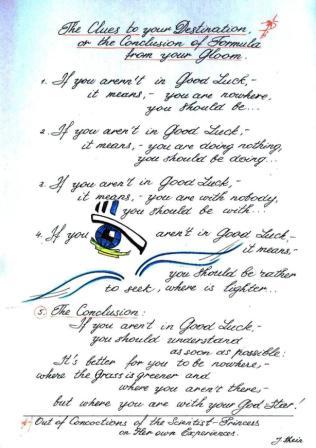 The Clues to your Destination,
or the Conclusion of Formula
from your Gloom.
1. If you aren't in Good Luck,-
it means,- you are nowhere,
you should be...
2. If you aren't in Good Luck,-
it means,- you are doing nothing,
you should be doing...
3. If you aren't in Good Luck,-
it means,- you are with nobody,
you should be with...
4. If you aren't in Good Luck,-
it means,-
you should be rather
to seek, where is lighter...
5. The Conclusion:
If you aren't in Good Luck,-
you should understand
as soon as possible:
It's better for you to be nowhere,-
where the Grass is greener and
where you aren't there,-
but where you are with your God Star!
*) Out of Concoctions of the Scientist-Princess
on Her own Experience.